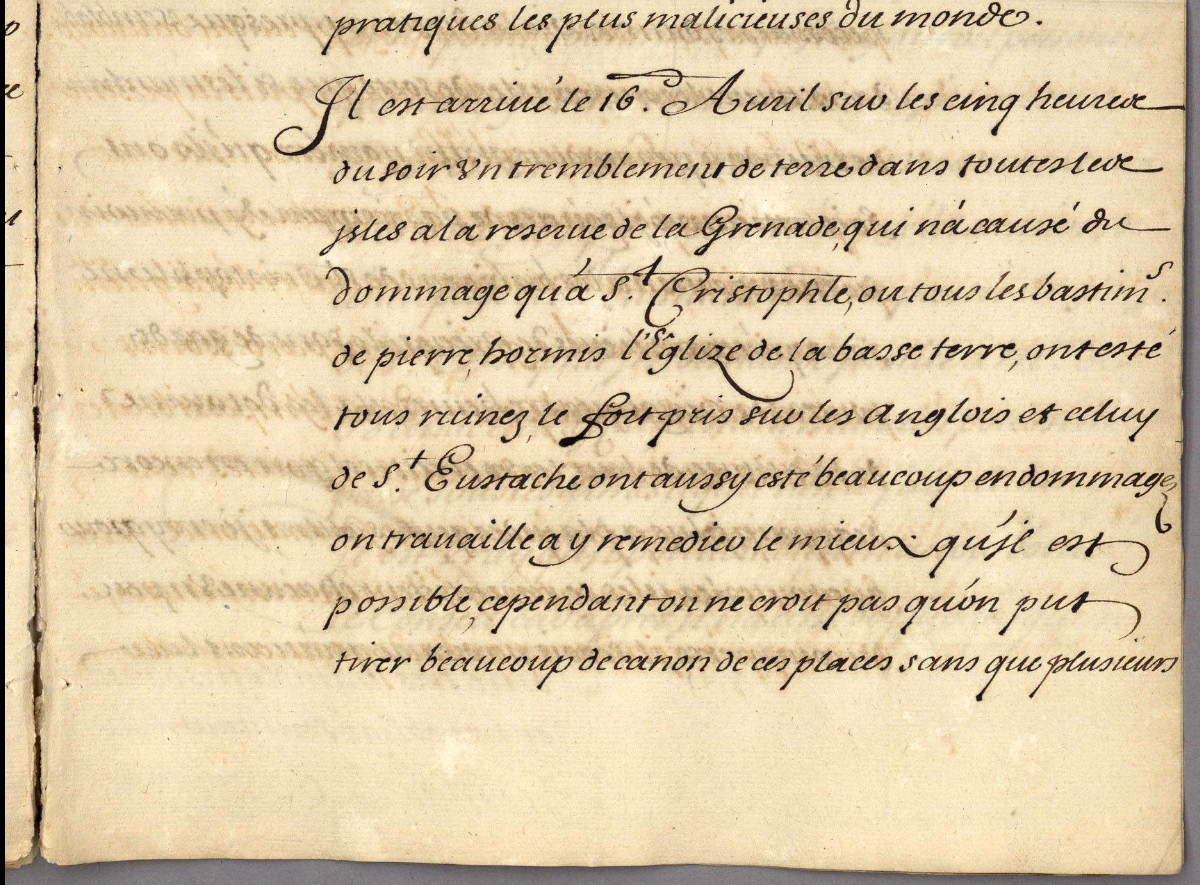 pratiques les plus malicieuses du monde.
Il est arriué le 16. Auril sur les cinq heures
du soir vn tremblement de terre dans toutes les
jsles a la reserue de la Grenade, qui n'a causé du
dommage qu'à S.t Cristophle, ou tous les bastim.s
de pierre, hormis l'Eglize de la basse terre, ont esté
tous ruinez, le fort pris sur les anglois et celuy
de S.t Eustache ont aussy esté beaucoup endommagez
on travaille a y remedier le mieux qu'jl est
possible, cependant on ne croit pas qu'on put
tirer beaucoup de canon de ces places sans que plusieurs